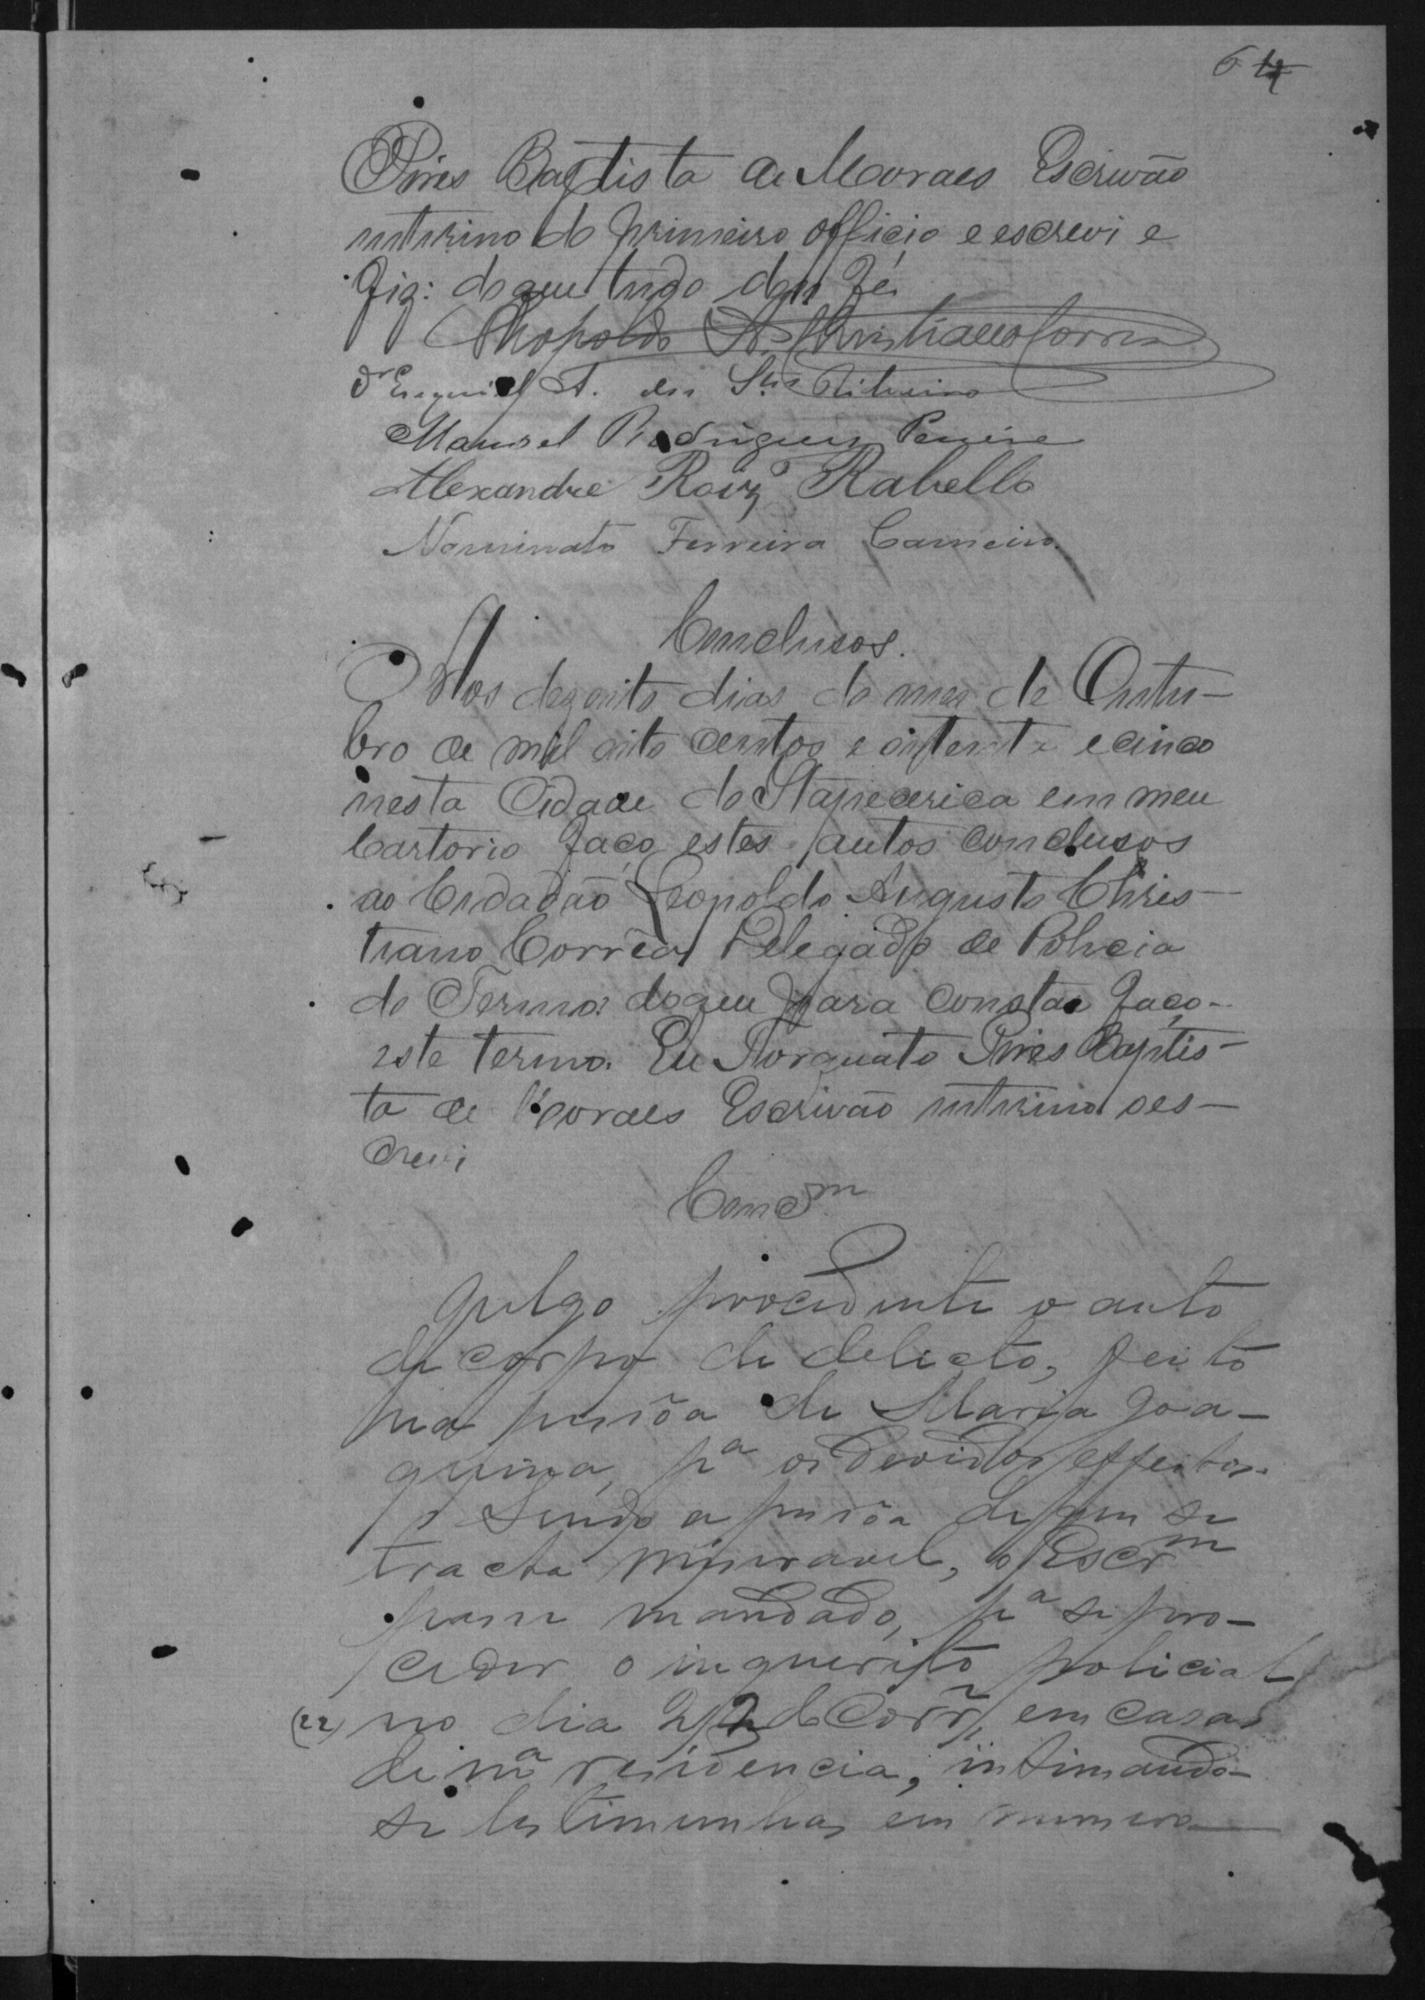 6 4
Pires Baptista de Moraes Escrivão
interino do primeiro officio e escrevi e
fiz: do que tudo dou fé.
Leopoldo A. Christiano Corrêa
Dr Ezequiel A. dos Stos Ribeiro
Manoel Rodrigues
Alexandre Roiz Rabello
Nominato Ferreira Carneiro
Conclusos.
Aos dezoito dias do mes de Outu-
bro de mil oito centos e oitenta e cinco
nesta Cidade do Itapecerica em meu
Cartorio faço estes autos conclusos
ao Cidadão Leopoldo Augusto Chris-
tiano Corrêa Delegado de Policia
do Termo: do que para constar faço
este termo. Eu Torquato Pires Baptis-
ta de Moraes Escrivão interino o es-
crevi
Concm
Julgo procedente o auto
de corpo de delicto, feito
na pessôa de Maria Joa-
quina, pa os devidos effeitos.
E sendo a pessôa de quem se
tracta miseravel, o Escrm
passe mandado, pa se pro-
ceder o inquerito policial
(22) no dia 22 do Corr, em casa
de ma residencia, intimando-
se testimunhas em numero